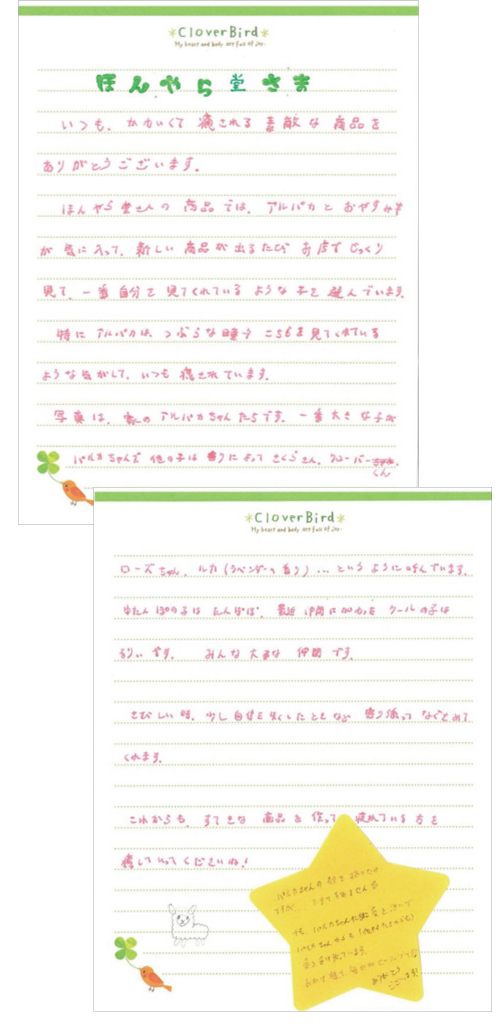 CloverBird
My heart and body are full of joy.
ほんやら堂さま
いつも、かわいくて 癒される 素敵な 商品を
ありがとうございます。
ほんやら堂さんの 商品では、アルパカと おやすみ羊
が 気に入って、新しい 商品が 出るたび お店で じっくり
見て、一番 自分を 見てくれている ような 子を 選んでいます。
特に アルパカは、つぶらな 瞳で こちらを 見てくれている
ような 気がして、いつも 癒されています。
写真は、私の アルパカちゃんたちです。一番 大きな 子が
パルカちゃんで 他の子は 香りによって さくらさん、クローバー
くん
CloverBird
My heart and body are full of joy.
ローズちゃん、ルカ(ラベンダーの香り)…という ように 呼んでいます。
ゆたんぽの子は たんぽぽ、最近 仲間に 加わった クールの子は
るりぃ です。 みんな 大事な 仲間 です。
さびしい 時、少し 自信を 失くした ときなど 寄り添って なぐさめて
くれます。
これからも、すてきな 商品を 作って 疲れている 方を
癒していってくださいね!
パルカちゃんの
すみません
でも、パルカちゃん
パルカちゃん
ありがとう
ございます